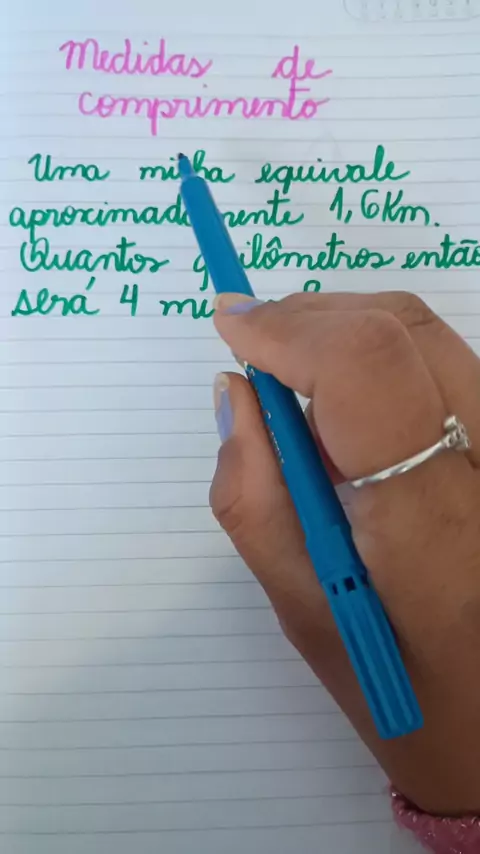 Medidas de
comprimento
Uma milha equivale
aproximadamente 1,6Km.
Quantos quilômetros então
será 4